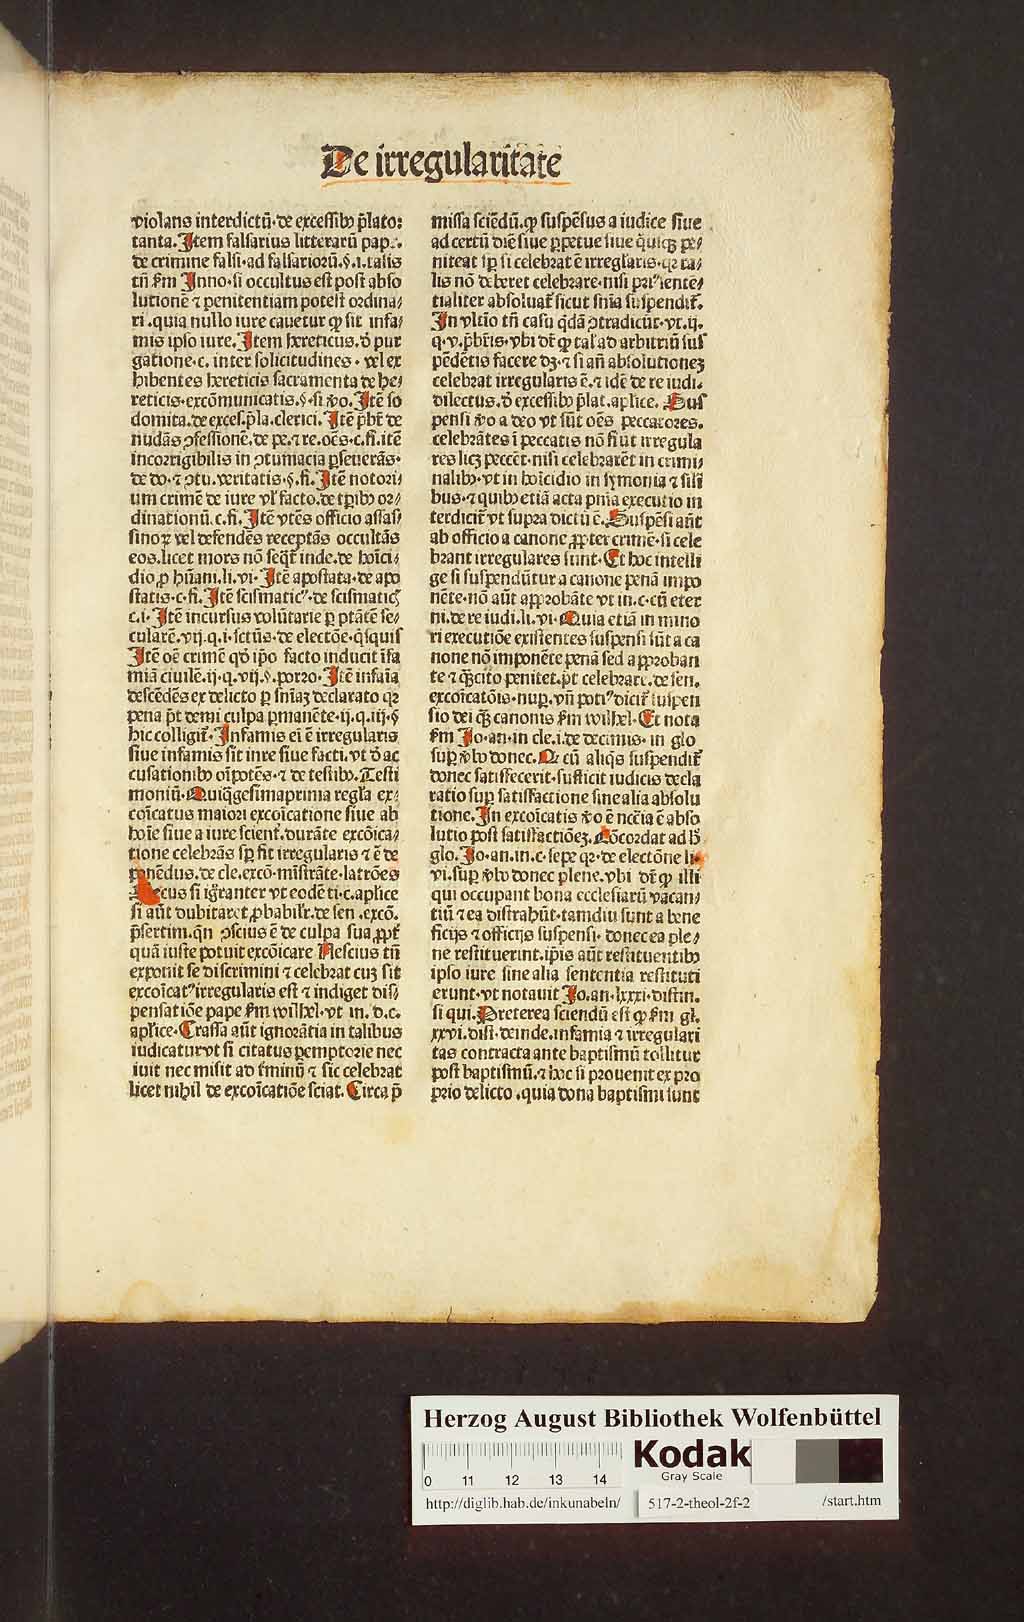 De irregularitate
violans interdictū·de excessibꝰ p̄lato:
tanta.Item falsarius litterarū pap
de crimine falsi·ad falsariorū.§.i.talis
tn̄ ẜm Inno·si occultus est post abso
lutionē ⁊ penitentiam potest ordina⸗
ri.quia nullo iure cauetur ꝙ sit infa⸗
mis ipso iure.Item hereticus.d̄ pur
gatione·c.inter solicitudines·vel ex
hibentes hereticis sacramenta de he⸗
reticis·excōmunicatis.§·si v̄o.Itē so
domita.de exces.p̄la.clerici.Itē p̄bt̄ de
nudās ꝯfessionē.de pe.⁊ re.oēs·c.fi.itē
incorrigibilis in ꝯtumacia ꝑseuerās·
de do·⁊ ꝯtu.veritatis·§.fi.Itē notori⸗
um crimē de iure vl̓ facto.de tp̄ibꝰ or⸗
dinationū.c.fi.Itē vtēs officio assas⸗
sinoꝝ vel defendēs receptās occultās
eos.licet mors nō seq̄t̄ inde.de hoīci⸗
dio ꝓ hūani.li.vi·Itē apostata·de apo
statis·c·fi.Itē scismaticꝰ·de scismatic̄
c.i·Itē incursus volūtarie ꝑ ptātē se⸗
cularē.vij.q.i·sctūs·de electōe·q̄squis
Itē oē crimē qd̓ ip̄o facto inducit īfa
miā ciuilē.ij·q.vij.§.porro·Itē infaīa
descēdēs ex delicto ꝑ sn̄iaꝫ declarato qꝛ
pena p̄t demi culpa ꝑmanēte·ij.q.iij·§
hic colligit̄·Infamis eī ē irregularis
siue infamis sit iure siue facti.vt d̄ ac
cusationibꝰ oīpotēs·⁊ de testibꝰ.Testi
moniū·Quīq̄gesimaprima reg̓la ex⸗
coīcatus maiori excoīcatione siue ab
hoīe siue a iure scient̄.durāte excōica⸗
tione celebrās sꝑ fit irregularis ⁊ ē de
ponēdus.de cle.excō·mīstrāte·latrōes
Secus si ig̓ranter vt eodē ti·c.aplice
si aūt dubitaret ꝓbabilr̄.de sen.excō.
p̄sertim.qn̄ ꝯscius ē de culpa sua ꝓpt̄
quā iuste potuit excōicare Nescius tn̄
exponit se discrimini ⁊ celebrat cuꝫ sit
excoīcatꝰ irregularis est ⁊ indiget dis⸗
pensatiōe pape ẜm wilhel·vt in.d.c.
aplice·Crassa aūt ignorātia in talibus
iudicatur vt si citatus ꝑemptorie nec
iuit nec misit ad t̄minū ⁊ sic celebrat
licet nihil de excoīcatiōe sciat.Circa p̄
missa sciēdū.ꝙ suspēsus a iudice siue
ad certū diē siue ꝑpetue siue q̄usqꝫ pe⸗
niteat sꝑ si celebrat ē irreg̓laris·qꝛ ta⸗
lis nō deberet celebrare·nisi pri⁹ sentē⸗
tialiter absoluat̄ sicut sn̄ia suspendit̄.
In vltīo tn̄ casu q̄dā ꝯtradicūt·vt.ij.
q·v.p̄bt̄is·vbi dt̄ ꝙ tal̓ ad arbitriū sus
pēdētis facere dꝫ·⁊ si añ absolutioneꝫ
celebrat irregularis ē.⁊ idē de re iudi.
dilectus.d̄ excessibꝰ p̄lat.aplice.Sus
pensi v̄o a deo vt sūt oēs peccatores.
celebrātes ī peccatis nō fiūt irregula
res licꝫ peccēt·nisi celebrarēt in crimi⸗
nalibꝰ·vt in hoīcidio in symonia ⁊ sil̓i
bus·⁊ quibꝰ etiā acta p̄nia executio in
terdicit̄ vt supra dictū ē.Suspēsi aūt
ab officio a canone ꝓpter crimē·si cele
brant irregulares sunt·Et hoc intelli
ge si suspendūtur a canone penā impo
nēte·nō aūt approbāte vt in·c·cū eter
ni.de re iudi.li.vi·Quia etiā in mino
ri executiōe existentes suspensi sūt a ca
none nō imponēte penā sed approban
te ⁊ q̄cito penitet.p̄t celebrare.de sen.
excoīcatōis·nuꝑ.vn̄ poti⁹ dicit̄ suspen
sio dei q̄ꝫ canonis ẜm wilhel·Et nota
ẜm Jo·an·in cle.i.de decimis·in glo
suꝑ v̄bo donec.Qꝛ cū aliq̄s suspendit̄
donec satisfecerit·sufficit iudicis decla
ratio suꝑ satisfactione sine alia absolu
tione.In excoīcatis v̄o ē nec̄cia ē abso
lutio post satisfactiōeꝫ.Cōcordat ad h̄
glo.Jo·an.in.c·sepe qꝛ·de electōne li·
vi.suꝑ v̄bo donec plene.vbi dt̄ ꝙ illi
qui occupant bona ecclesiarū vacan⸗
tiū ⁊ ea distrahūt·tamdiu sunt a bene
ficijs ⁊ officijs suspensi·donec ea ple⸗
ne restituerint.ip̄is aūt restituentibꝰ
ipso iure sine alia sententia restituti
erunt·vt notauit Jo.an·lxxxi·distin.
si qui.Preterea sciendū est ꝙ ẜm gl.
xxvi.dist·deinde.infamia ⁊ irregulari
tas contracta ante baptismū tollitur
post baptismū.⁊ hoc si prouenit ex pro
prio delicto.quia dona baptismi sunt
Herzog August Bibliothek Wolfenbüttel
0 11 12 13 14
Kodak
Gray Scale
http://diglib.hab.de/inkunabeln/ 517-2-theol-2f-2 /start.htm